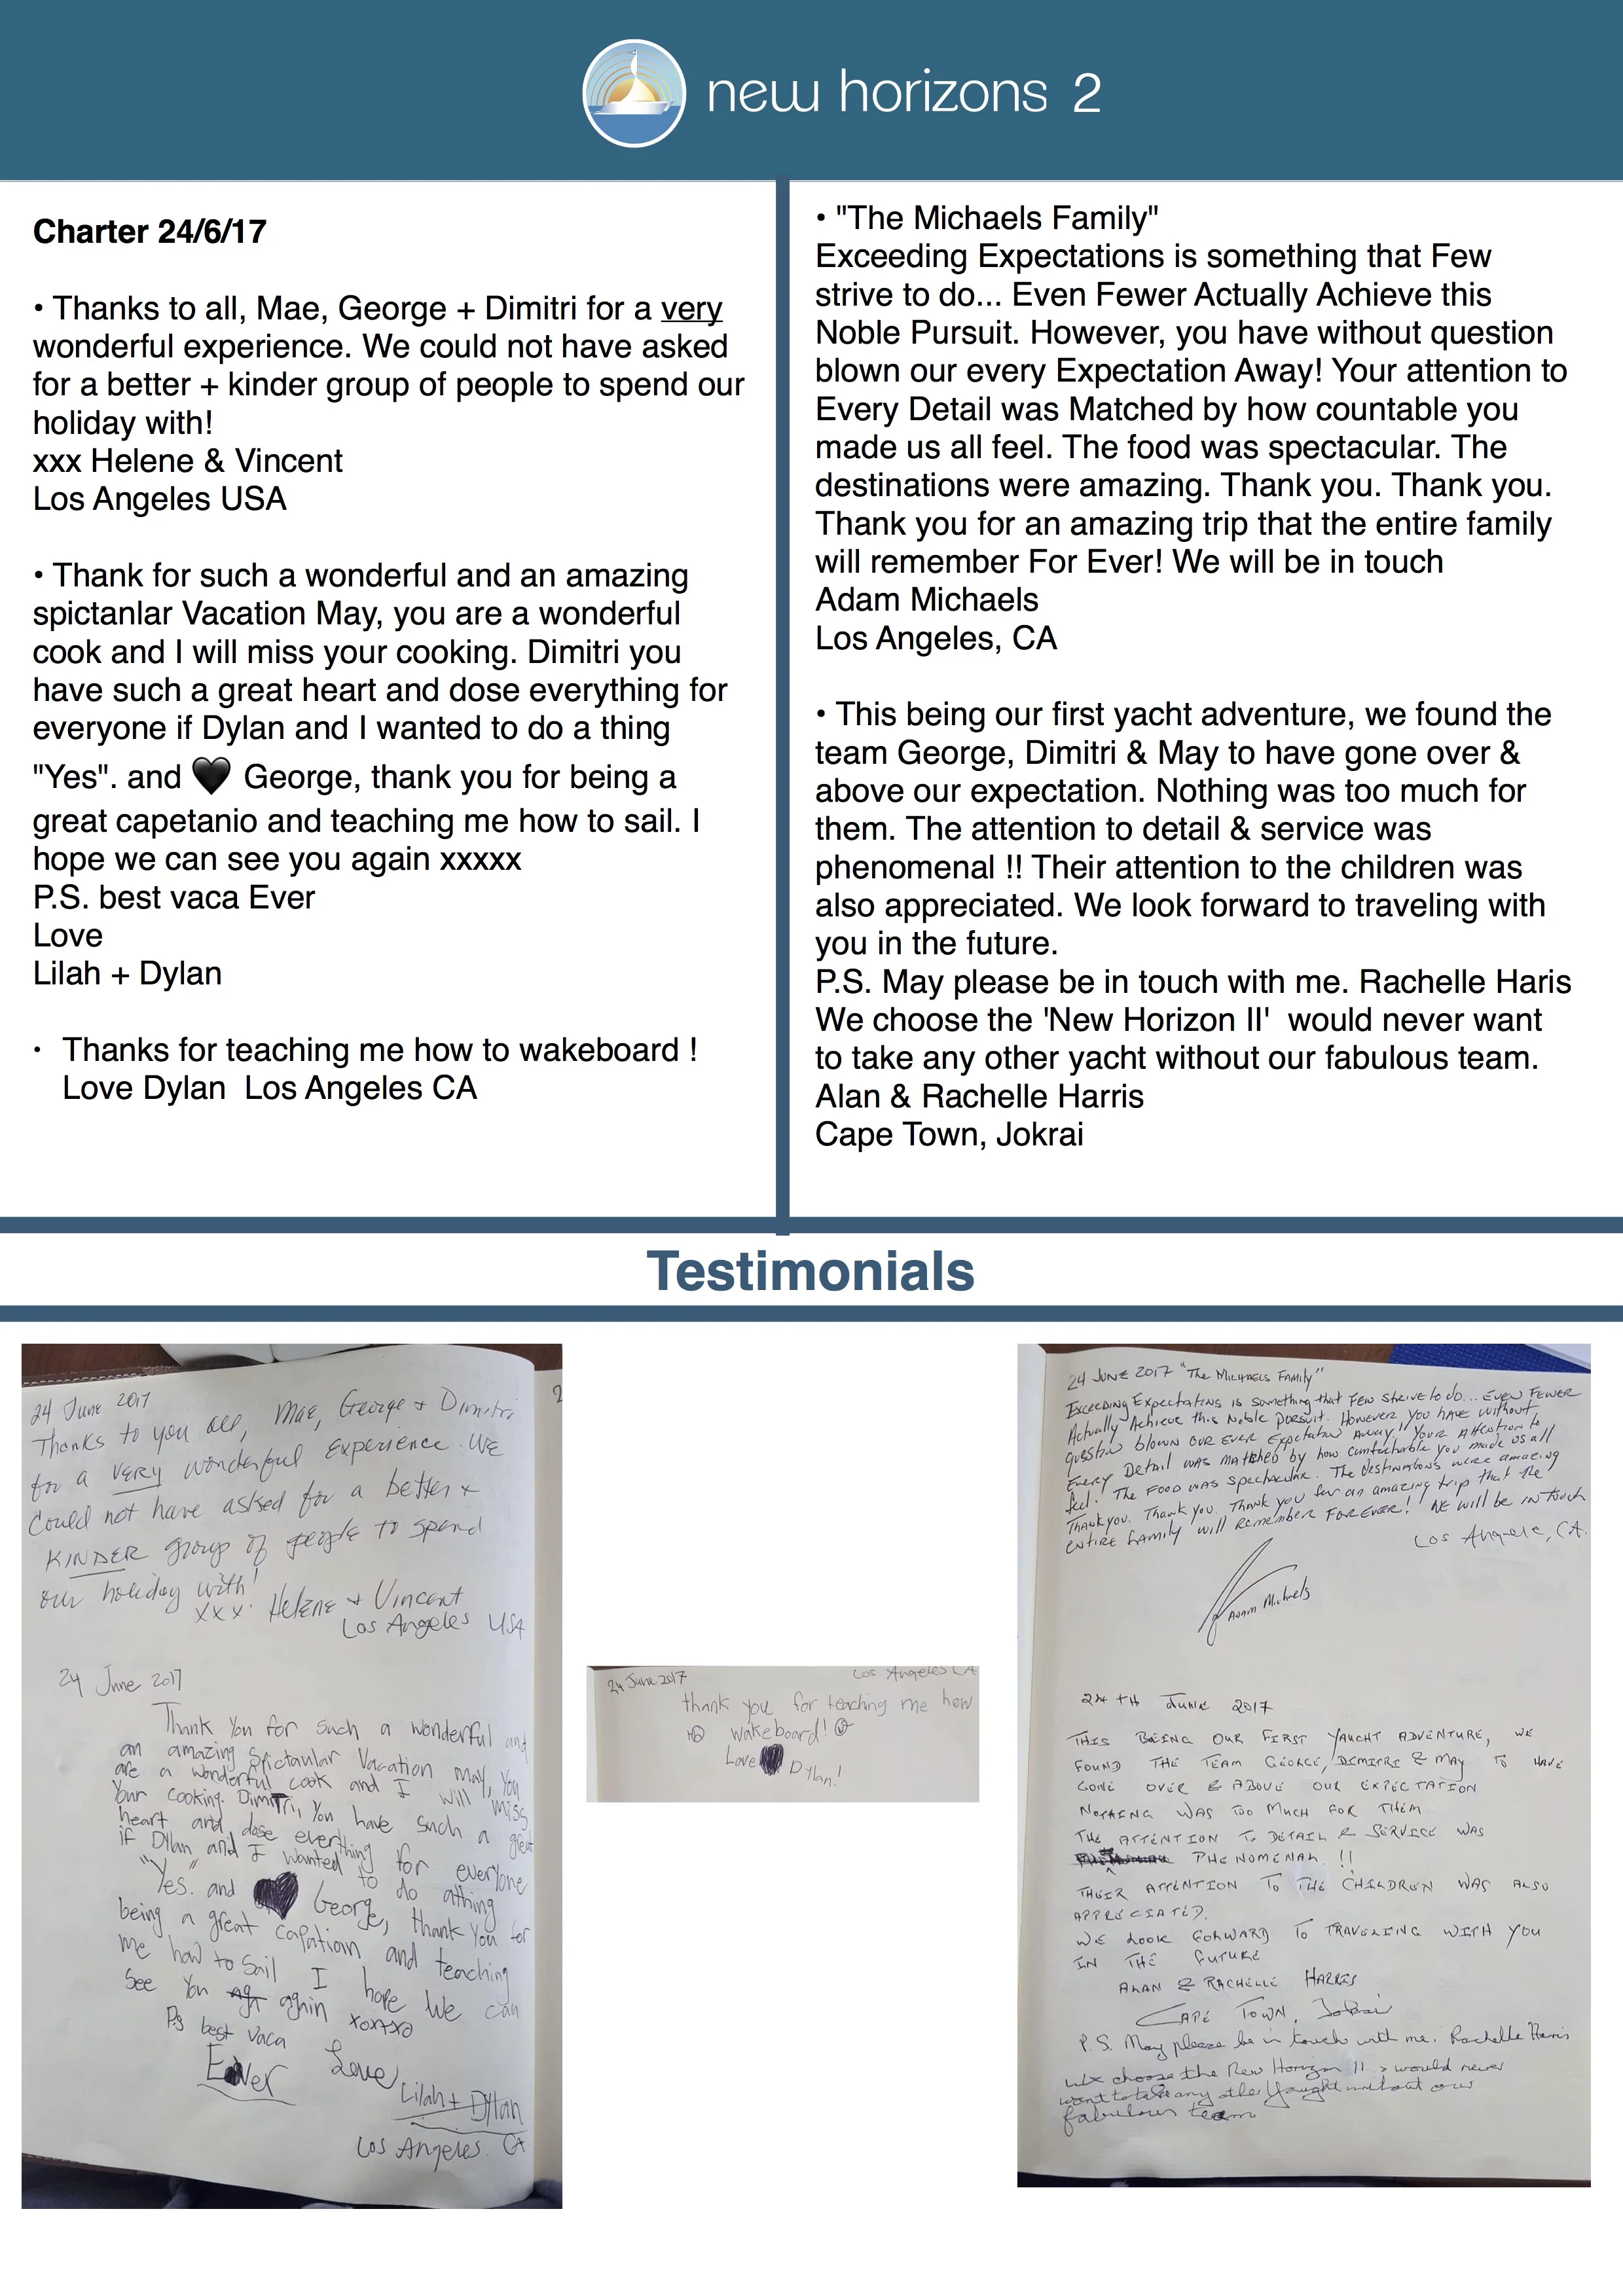 new horizons 2
Charter 24/6/17
• Thanks to all, Mae, George + Dimitri for a very
wonderful experience. We could not have asked
for a better + kinder group of people to spend our
holiday with!
xxx Helene & Vincent
Los Angeles USA
• Thank for such a wonderful and an amazing
spictanlar Vacation May, you are a wonderful
cook and I will miss your cooking. Dimitri you
have such a great heart and dose everything for
everyone if Dylan and I wanted to do a thing
"Yes". and 🖤 George, thank you for being a
great capetanio and teaching me how to sail. I
hope we can see you again xxxxx
P.S. best vaca Ever
Love
Lilah + Dylan
• Thanks for teaching me how to wakeboard !
Love Dylan Los Angeles CA
• "The Michaels Family"
Exceeding Expectations is something that Few
strive to do... Even Fewer Actually Achieve this
Noble Pursuit. However, you have without question
blown our every Expectation Away! Your attention to
Every Detail was Matched by how countable you
made us all feel. The food was spectacular. The
destinations were amazing. Thank you. Thank you.
Thank you for an amazing trip that the entire family
will remember For Ever! We will be in touch
Adam Michaels
Los Angeles, CA
• This being our first yacht adventure, we found the
team George, Dimitri & May to have gone over &
above our expectation. Nothing was too much for
them. The attention to detail & service was
phenomenal !! Their attention to the children was
also appreciated. We look forward to traveling with
you in the future.
P.S. May please be in touch with me. Rachelle Haris
We choose the 'New Horizon II' would never want
to take any other yacht without our fabulous team.
Alan & Rachelle Harris
Cape Town, Jokrai
Testimonials
24 June 2017
Thanks to you all, Mae, George + Dimitri
for a VERY wonderful experience. WE
Could not have asked for a better +
KINDER group of people to spend
our holiday with!
xxx. Helene + Vincent
Los Angeles USA
24 June 2017
Thank You for such a wonderful and
an amazing Spictanlar Vacation May, You
are a wonderful cook and I will miss
Your cooking. Dimitri, You have such a great
heart and dose everthing for everyone
if Dylan and I wanted to do athing
"Yes". and George, thank You for
being a great capatiom and teaching
me how to Sail I hope We can
See You again xoxoxo
P.s best vaca
Ever Love
Lilah + Dylan
Los Angeles. CA
24 June 2017 Los Angeles CA
thank you for teaching me how
to wakeboard!
Love Dylan!
24 June 2017 "The Michaels Family"
Exceeding Expectations is something that Few strive to do... Even Fewer
Actually Achieve this Noble pursuit. However, you have without
question blown our ever Expectation Away!! Your Attention to
Every Detail was matched by how comfortable you made us all
feel. The Food was spectacular. The destinations were amazing
Thank you. Thank you. Thank you for an amazing trip that the
entire family will remember FOREVER! WE will be in touch
Los Angeles, CA.
Adam Michaels
24TH June 2017
THIS BEING OUR FIRST YAUGHT ADVENTURE, WE
FOUND THE TEAM GEORGE, DIMITRI & MAY TO HAVE
GONE OVER & ABOVE OUR EXPECTATION
NOTHING WAS TOO MUCH FOR THEM
THE ATTENTION TO DETAIL & SERVICE WAS
PHENOMENAL !!
THEIR ATTENTION TO THE CHILDREN WAS ALSO
APPRECIATED.
WE LOOK FORWARD TO TRAVELING WITH YOU
IN THE FUTURE
ALAN & RACHELLE HARRIS
CAPE TOWN,
P.S. May please be in touch with me. Rachelle Harris
We choose the New Horizon II > would never
want to take any other Yaught without our
fabulous team